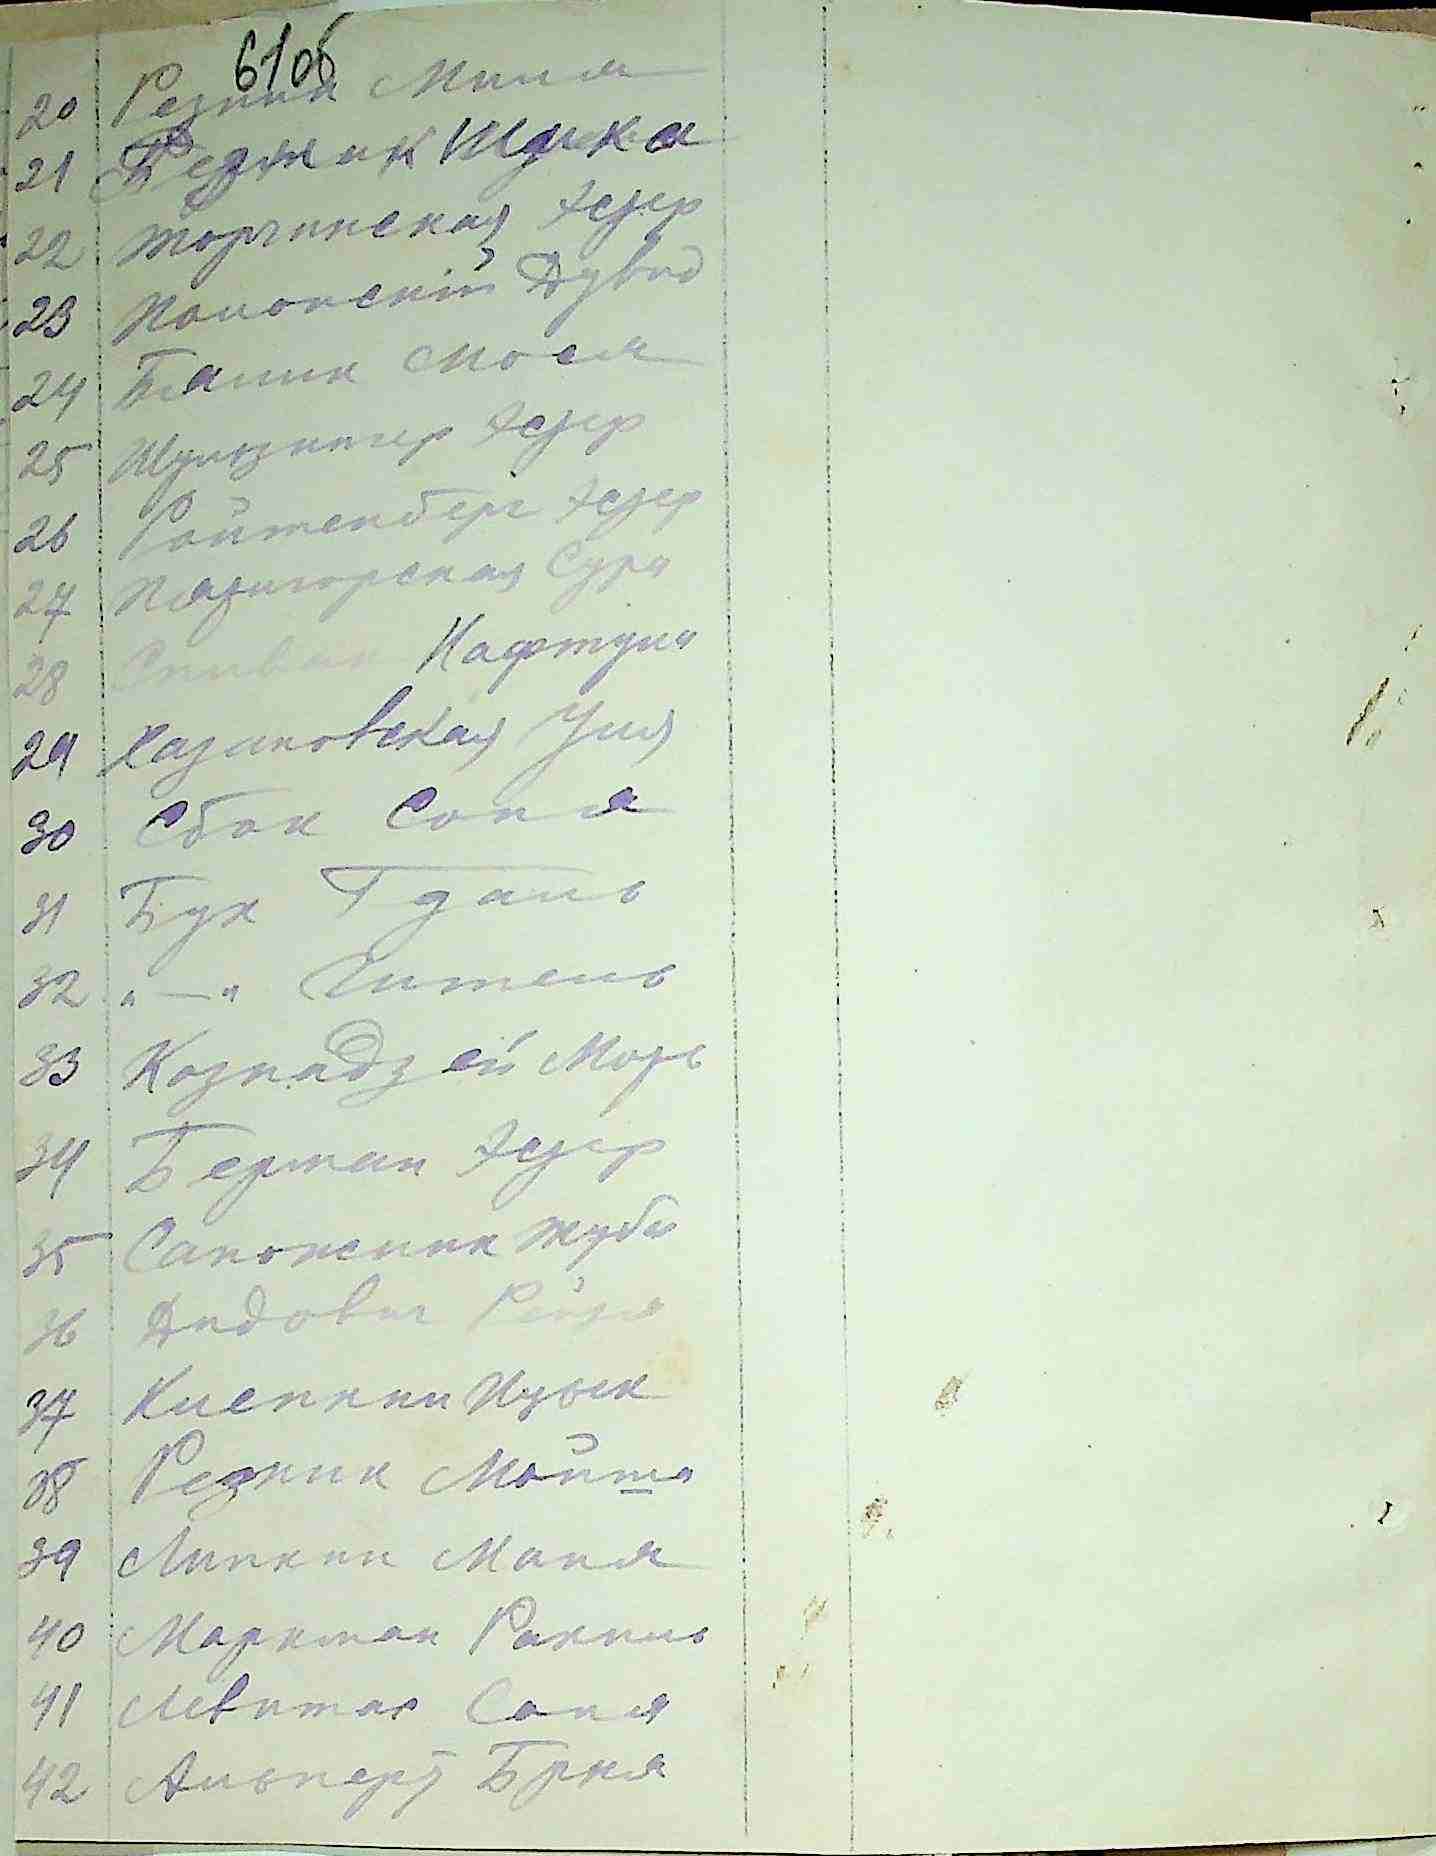 61об
20 Резник Миля
21 Резник
22 Торчинская Естер
23 Полонскій Дувид
24 Блиник Мося
25 Шульзингер Естер
26 Ройтенберг Естер
27 Пятигорская Сура
28 Спивак Нафтула
29 Хазановская Уля
30 Сбак Соня
31 Бук Гдаль
32 „—„ Гитель
33 Козпадзей
34 Берман Естер
35 Сапожник
36 Дидович Рейзя
37 Кислкин Ицык
38 Резник Мойша
39 Липкин Маня
40 Маркман Рахиль
41 Левитас Соня
42 Альперт Брня